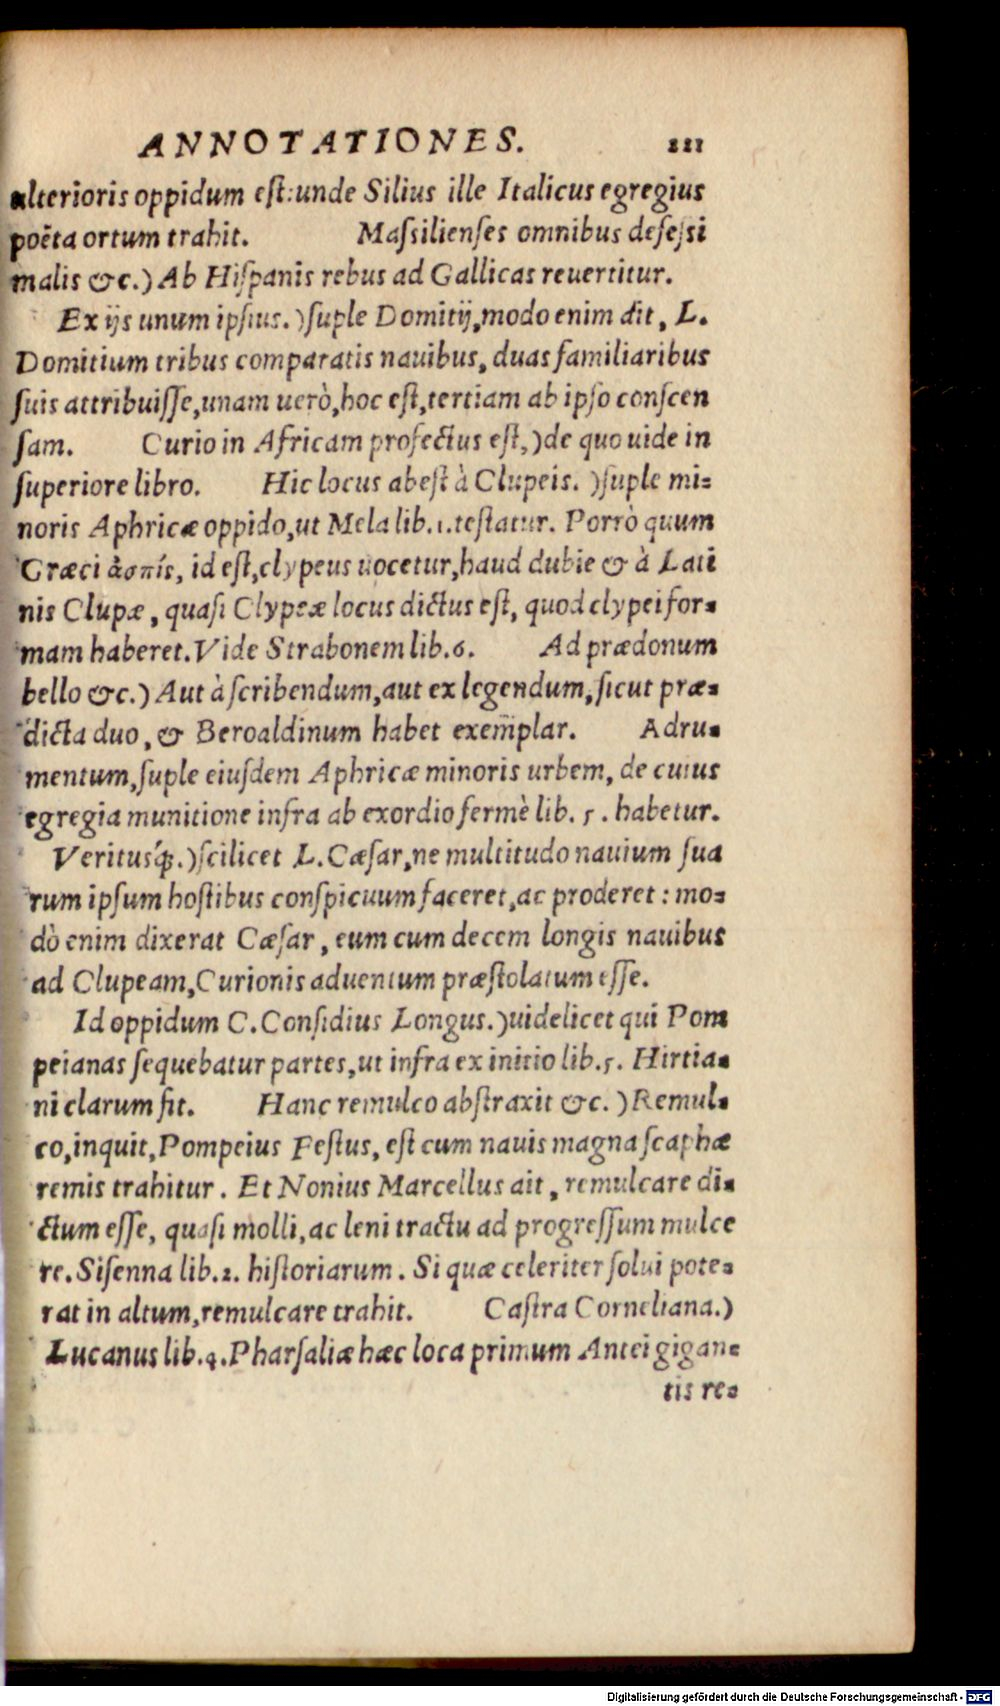 ANNOTATIONES. 111
alterioris oppidum est: unde Silius ille Italicus egregius
poëta ortum trahit. Maſsilienſes omnibus defeſsi
malis &c.) Ab Hiſpanis rebus ad Gallicas reuertitur.
Ex ijs unum ipſius.) ſuple Domitij, modo enim ait, L.
Domitium tribus comparatis nauibus, duas familiaribus
ſuis attribuiſſe, unam uerò, hoc eſt, tertiam ab ipſo conſcen
ſam. Curio in Africam profectus eſt,) de quo uide in
ſuperiore libro. Hic locus abeſt à Clupeis.) ſuple mi=
noris Aphricæ oppido, ut Mela lib. 1. teſtatur. Porrò quum
Græci ἀσπίς, id eſt, clypeus uocetur, haud dubie & à Lati
nis Clupæ, quaſi Clypeæ locus dictus eſt, quod clypei for=
mam haberet. Vide Strabonem lib. 6. Ad prædonum
bello &c.) Aut à ſcribendum, aut ex legendum, ſicut præ=
dicta duo, & Beroaldinum habet exem̃plar. Adru=
mentum, ſuple eiuſdem Aphricæ minoris urbem, de cuius
egregia munitione infra ab exordio fermè lib. 5. habetur.
Veritusq́;.) ſcilicet L. Cæſar, ne multitudo nauium ſua
rum ipſum hoſtibus conſpicuum faceret, ac proderet: mo=
dò enim dixerat Cæſar, eum cum decem longis nauibus
ad Clupeam, Curionis aduentum præſtolatum eſſe.
Id oppidum C. Conſidius Longus.) uidelicet qui Pom
peianas ſequebatur partes, ut infra ex initio lib. 5. Hirtia=
ni clarum fit. Hanc remulco abſtraxit &c.) Remul=
co, inquit, Pompeius Feſtus, eſt cum nauis magna ſcaphæ
remis trahitur. Et Nonius Marcellus ait, remulcare di=
ctum eſſe, quaſi molli, ac leni tractu ad progreſſum mulce
re. Siſenna lib. 2. hiſtoriarum. Si quæ celeriter ſolui pote=
rat in altum, remulcare trahit. Caſtra Corneliana.)
Lucanus lib. 4. Pharſaliæ hæc loca primum Antei gigan=
tis re=
Digitalisierung gefördert durch die Deutsche Forschungsgemeinschaft - DFG